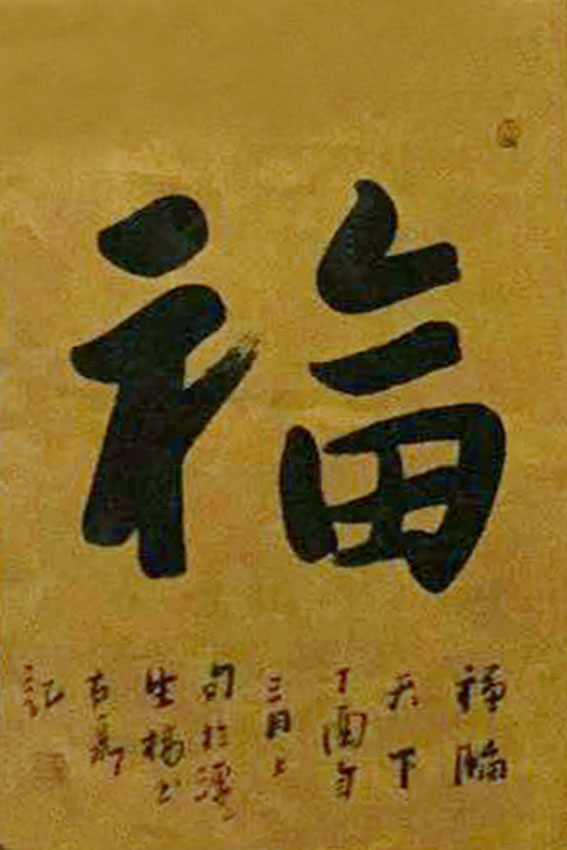 福
福臨
天下
丁酉年
三月上
旬於
生楊
古
記